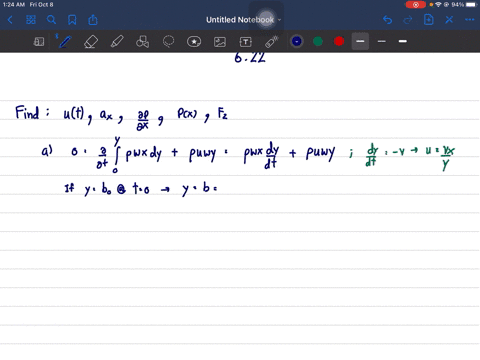 1:24 AM Fri Oct 8
94%
Untitled Notebook
6.22
Find : u(t), aₓ, ∂p/∂x, P(x), F₂
a) 0 = ∂/∂t ∫₀ʸ ρwx dy + ρuwy = ρwx dy/dt + ρuwy ; dy/dt = -v → u = vx/y
If y = b₀ @ t=0 → y = b =